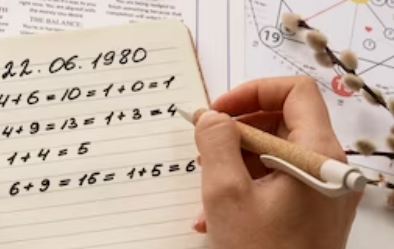 THE BALANCE:
22.06.1980
4+6=10=1+0=1
4+9=13=1+3=4
1+4=5
6+9=15=1+5=6
19